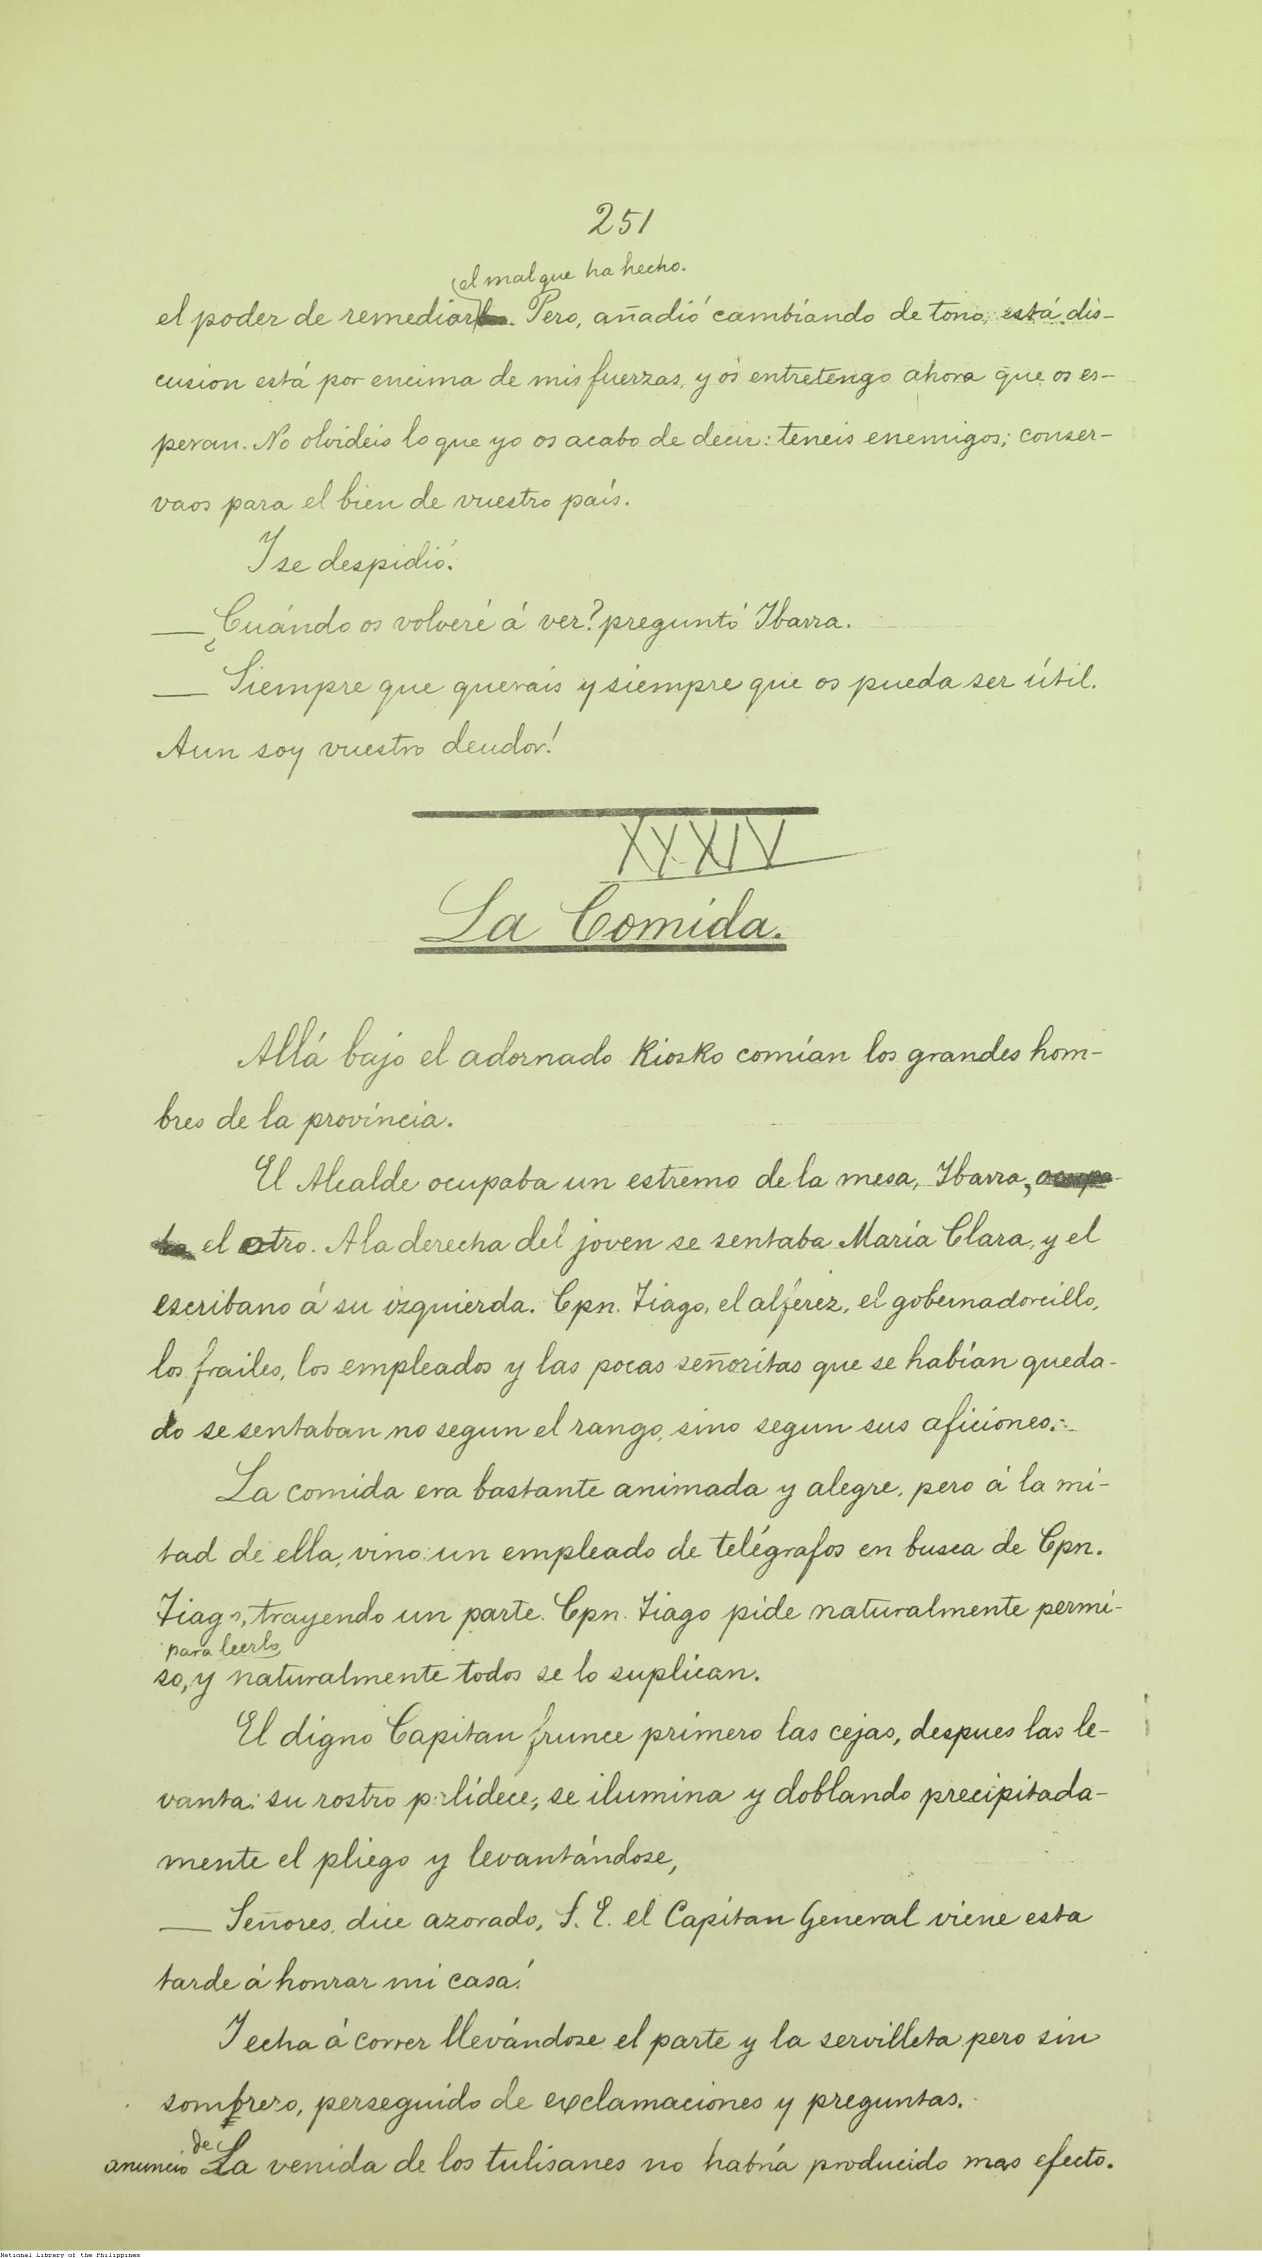 251
el mal que ha hecho.
el poder de remediar. Pero, añadió cambiando de tono, está dis-
cusion está por encima de mis fuerzas, y os entretengo ahora que os es-
peran. No olvideis lo que yo os acabo de decir: teneis enemigos; conser-
vaos para el bien de vuestro país.
Y se despidió.
— ¿Cuándo os volveré á ver? preguntó Ibarra.
— Siempre que querais y siempre que os pueda ser útil.
Aun soy vuestro deudor!
XXXIV
La Comida.
Allá bajo el adornado kiosko comían los grandes hom-
bres de la provincia.
El Alcalde ocupaba un estremo de la mesa, Ibarra, ocupa-
ba el otro. A la derecha del joven se sentaba María Clara, y el
escribano á su izquierda. Cpn. Tiago, el alférez, el gobernadorcillo,
los frailes, los empleados y las pocas señoritas que se habían queda-
do se sentaban no segun el rango, sino segun sus aficiones.
La comida era bastante animada y alegre, pero á la mi-
tad de ella, vino un empleado de telégrafos en busca de Cpn.
Tiago, trayendo un parte. Cpn. Tiago pide naturalmente permi-
para leerlo
so, y naturalmente todos se lo suplican.
El digno Capitan frunce primero las cejas, despues las le-
vanta: su rostro palidece, se ilumina y doblando precipitada-
mente el pliego y levantándose,
— Señores, dice azorado, S. E. el Capitan General viene esta
tarde á honrar mi casa!
Y echa á correr llevándose el parte y la servilleta pero sin
sombrero, perseguido de exclamaciones y preguntas.
de
anuncio La venida de los tulisanes no habría producido mas efecto.
National Library of the Philippines